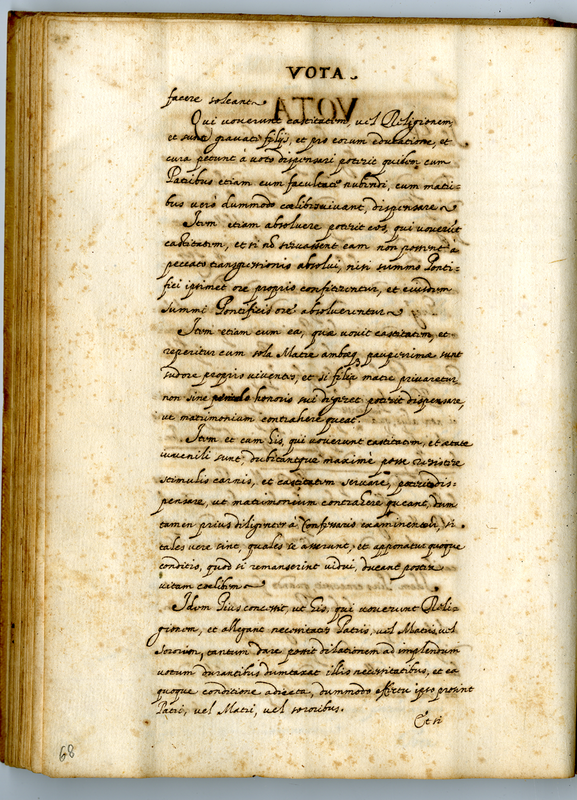 VOTA
facere soleant
Qui vouerunt castitatem, vel Religionem,
et sunt gravati filijs, et pro eorum educatione, et
cura petunt à voto dispensari poterit quibus cum
Patribus etiam cum facultate nubendi, cum matri-
bus vero dummodo coelibes vivant, dispensare
Item etiam absoluere poterit eos, qui vouerũt
castitatem, et si nõ servassent eam non possent à
peccato transgressionis absolui, nisi summo Ponti-
fici ipsimet ore proprio confiterentur, et eiusdem
summi Pontificis ore absoluerentur
Item etiam cum ea, quae vovit castitatem, et
reperitur cum sola Matre ambaeq, pauperrimae sunt
sudore proprio viventes, et si filia matre privaretur
non sine periculo honoris sui degeret poterit dispensare,
ut matrimonium contrahere queat.
Item et cum his, qui vouerunt castitatem, et aetate
iuvenili sunt, dubitantque maxime posse resistere
stimulis carnis, et castitatem servare, poterit dis-
pensare, ut matrimonium contrahere queant, dum
tamen prius diligenter à Confessario examinentur, si
tales vere sint, quales se asserunt, et apponatur quoque
conditio, quod si remanserint vidui, ducant postea
vitam coelibem
Idem Pius concessit, ut his, qui vouerunt Reli-
gionem, et allegant necessitatis Patris, vel Matris, vel
Sororum, tantum dare possit dilationem ad implendum
votum durantibus dumtaxat illis necessitatibus, et ea
quoque conditione adiecta, dummodo effectu ipso prosint
Patri, vel Matri, vel sororibus.
Et si
68